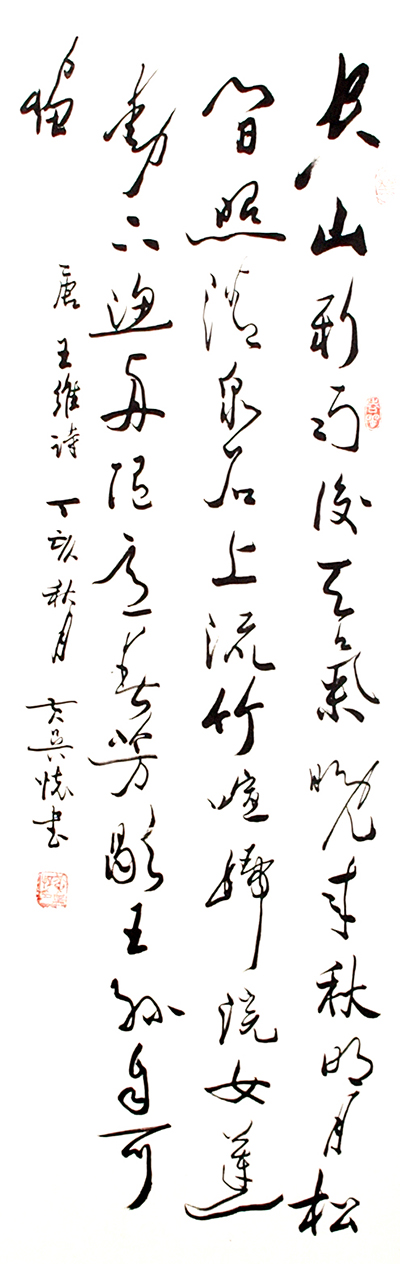 空山新雨後天氣晚來秋明月松
間照清泉石上流竹喧歸浣女蓮
動下漁舟隨意春芳歇王孫自可
留
唐王維詩丁亥秋月懷書